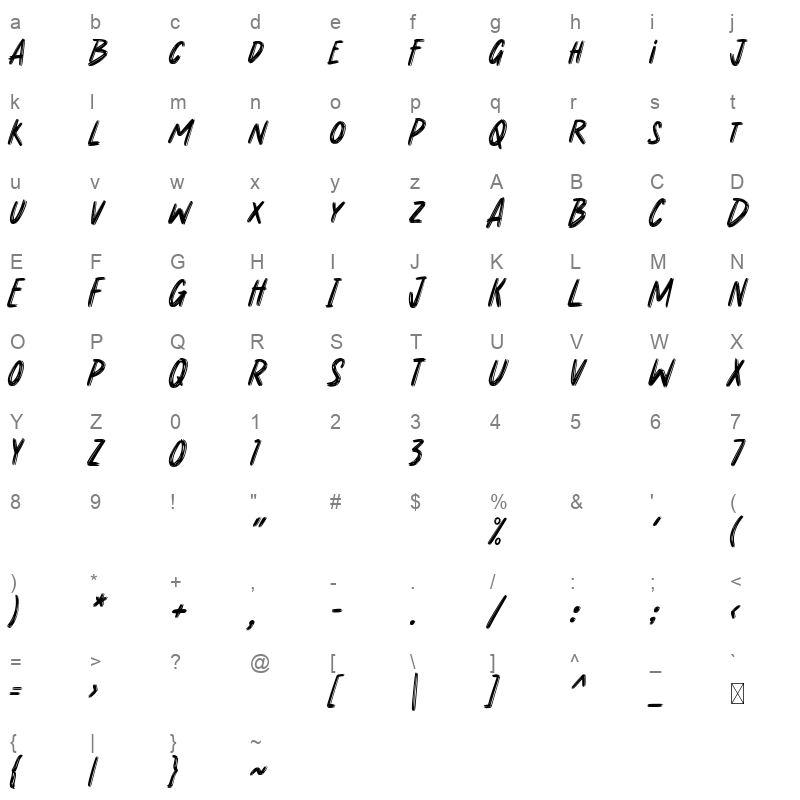 a b c d e f g h i j
A B C D E F G H i J
k l m n o p q r s t
K L M N O P Q R S T
u v w x y z A B C D
U V W X Y Z A B C D
E F G H I J K L M N
E F G H I J K L M N
O P Q R S T U V W X
O P Q R S T U V W X
Y Z 0 1 2 3 4 5 6 7
Y Z 0 1 3 7
8 9 ! " # $ % & ' (
" % ' (
) * + , - . / : ; <
) * + , - . / : ; <
= > ? @ [ \ ] ^ _ `
= > [ \ ] ^ _
{ | } ~
{ | } ~